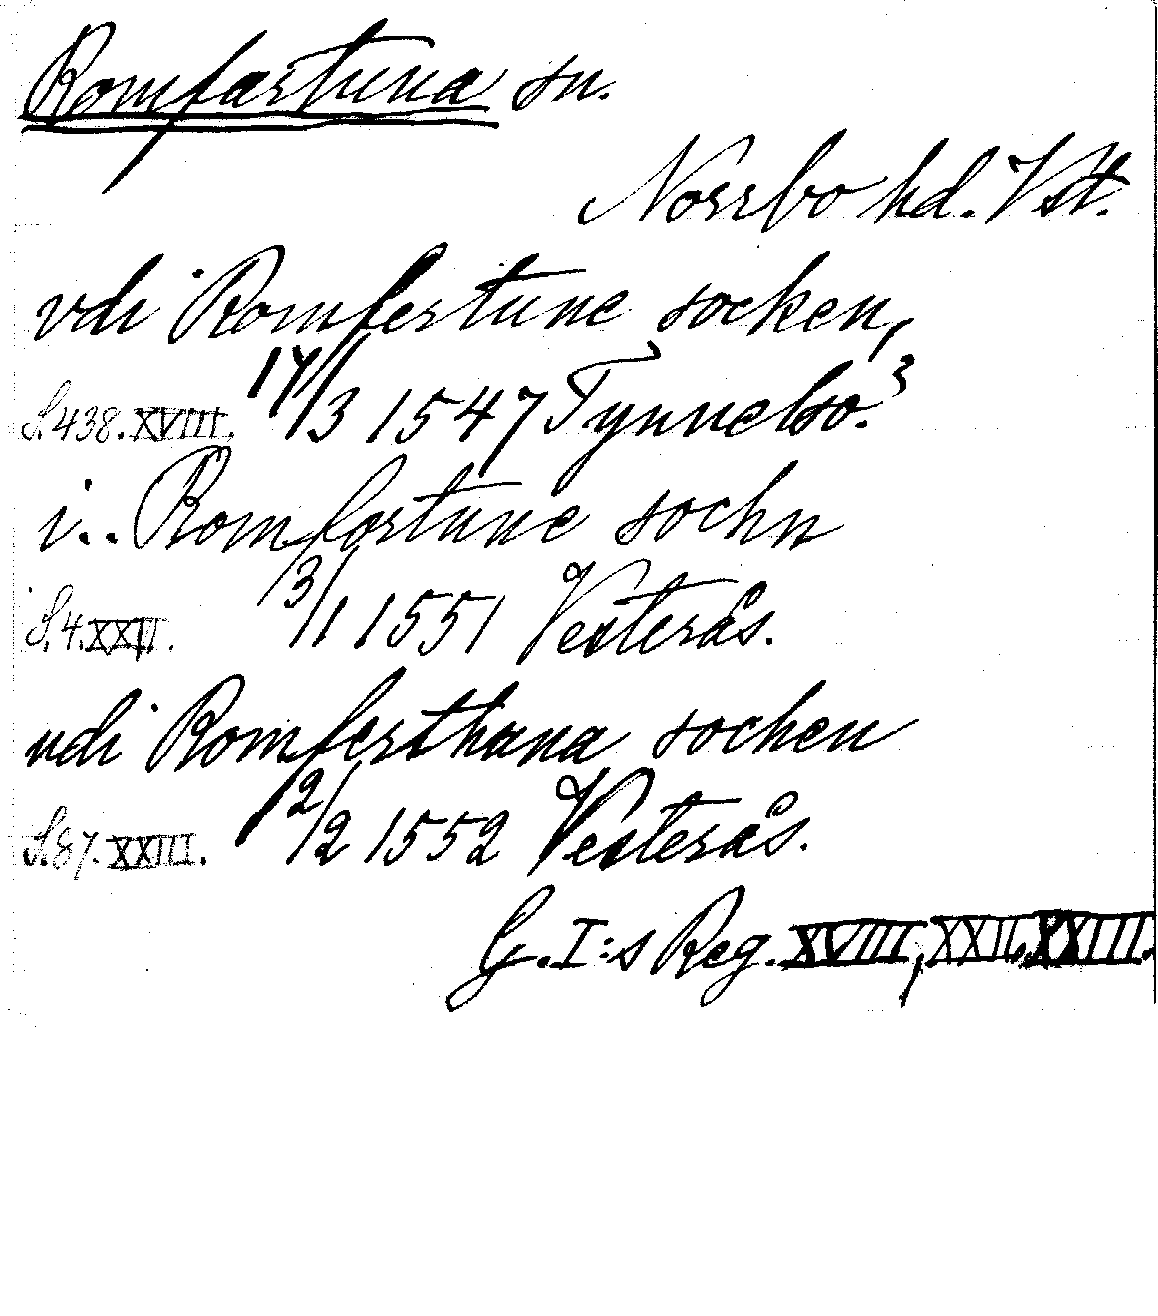 Romfartuna sn.
Norrbo hd. Vstm.
vdi Romfertune socken,
S. 438. XVIII. 17/3 1547 Tynnelsö.
i.. Romfortune sochn
S. 4. XXII. 3/1 1551 Vesterås.
vdi Romferthana sochen
S. 87. XXIII. 12/2 1552 Vesterås.
G. I:s Reg. XVIII, XXII, XXIII.